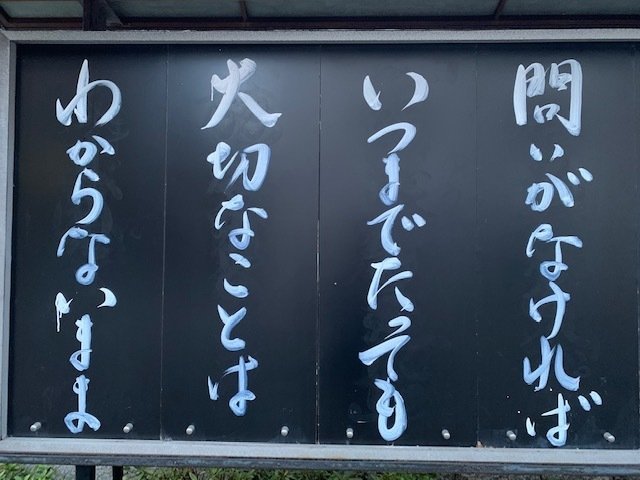 問いがなければ
いつまでたっても
大切なことは
わからないまま